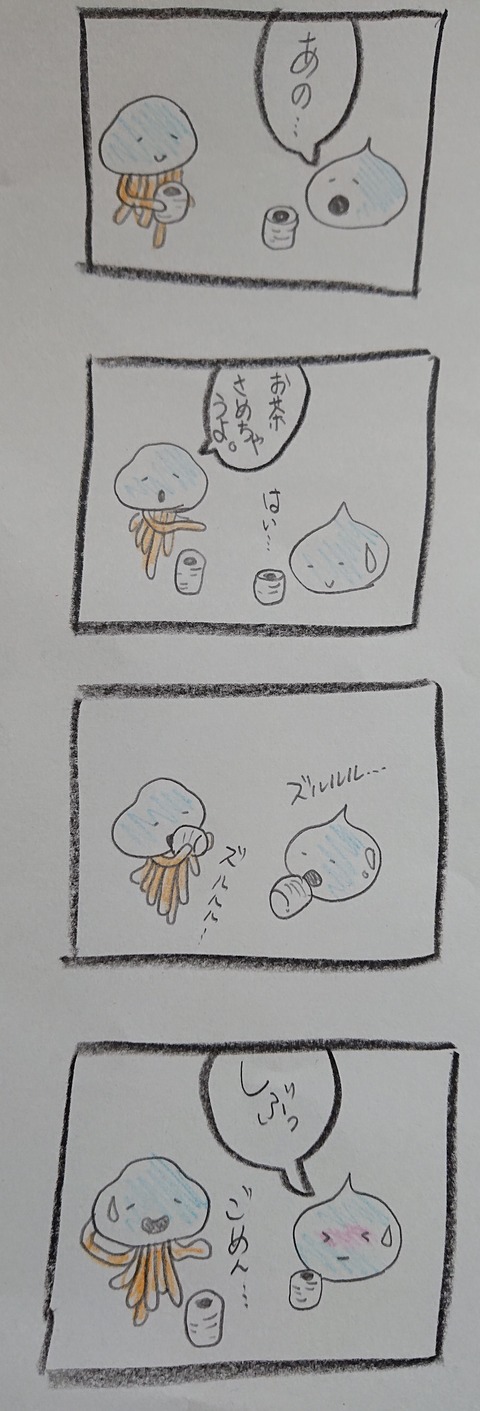 あの…
お茶
さめちゃ
うよ。
はい…
ズルルル…
ズルルル…
しぶっ
ごめん…